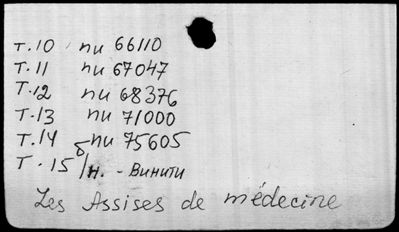 Т.10 пи 66110
Т.11 пи 67047
Т.12 пи 68376
Т.13 пи 71000
Т.14 пи 75605
Т.15 б/н. - Винити
Les Assises de médecine